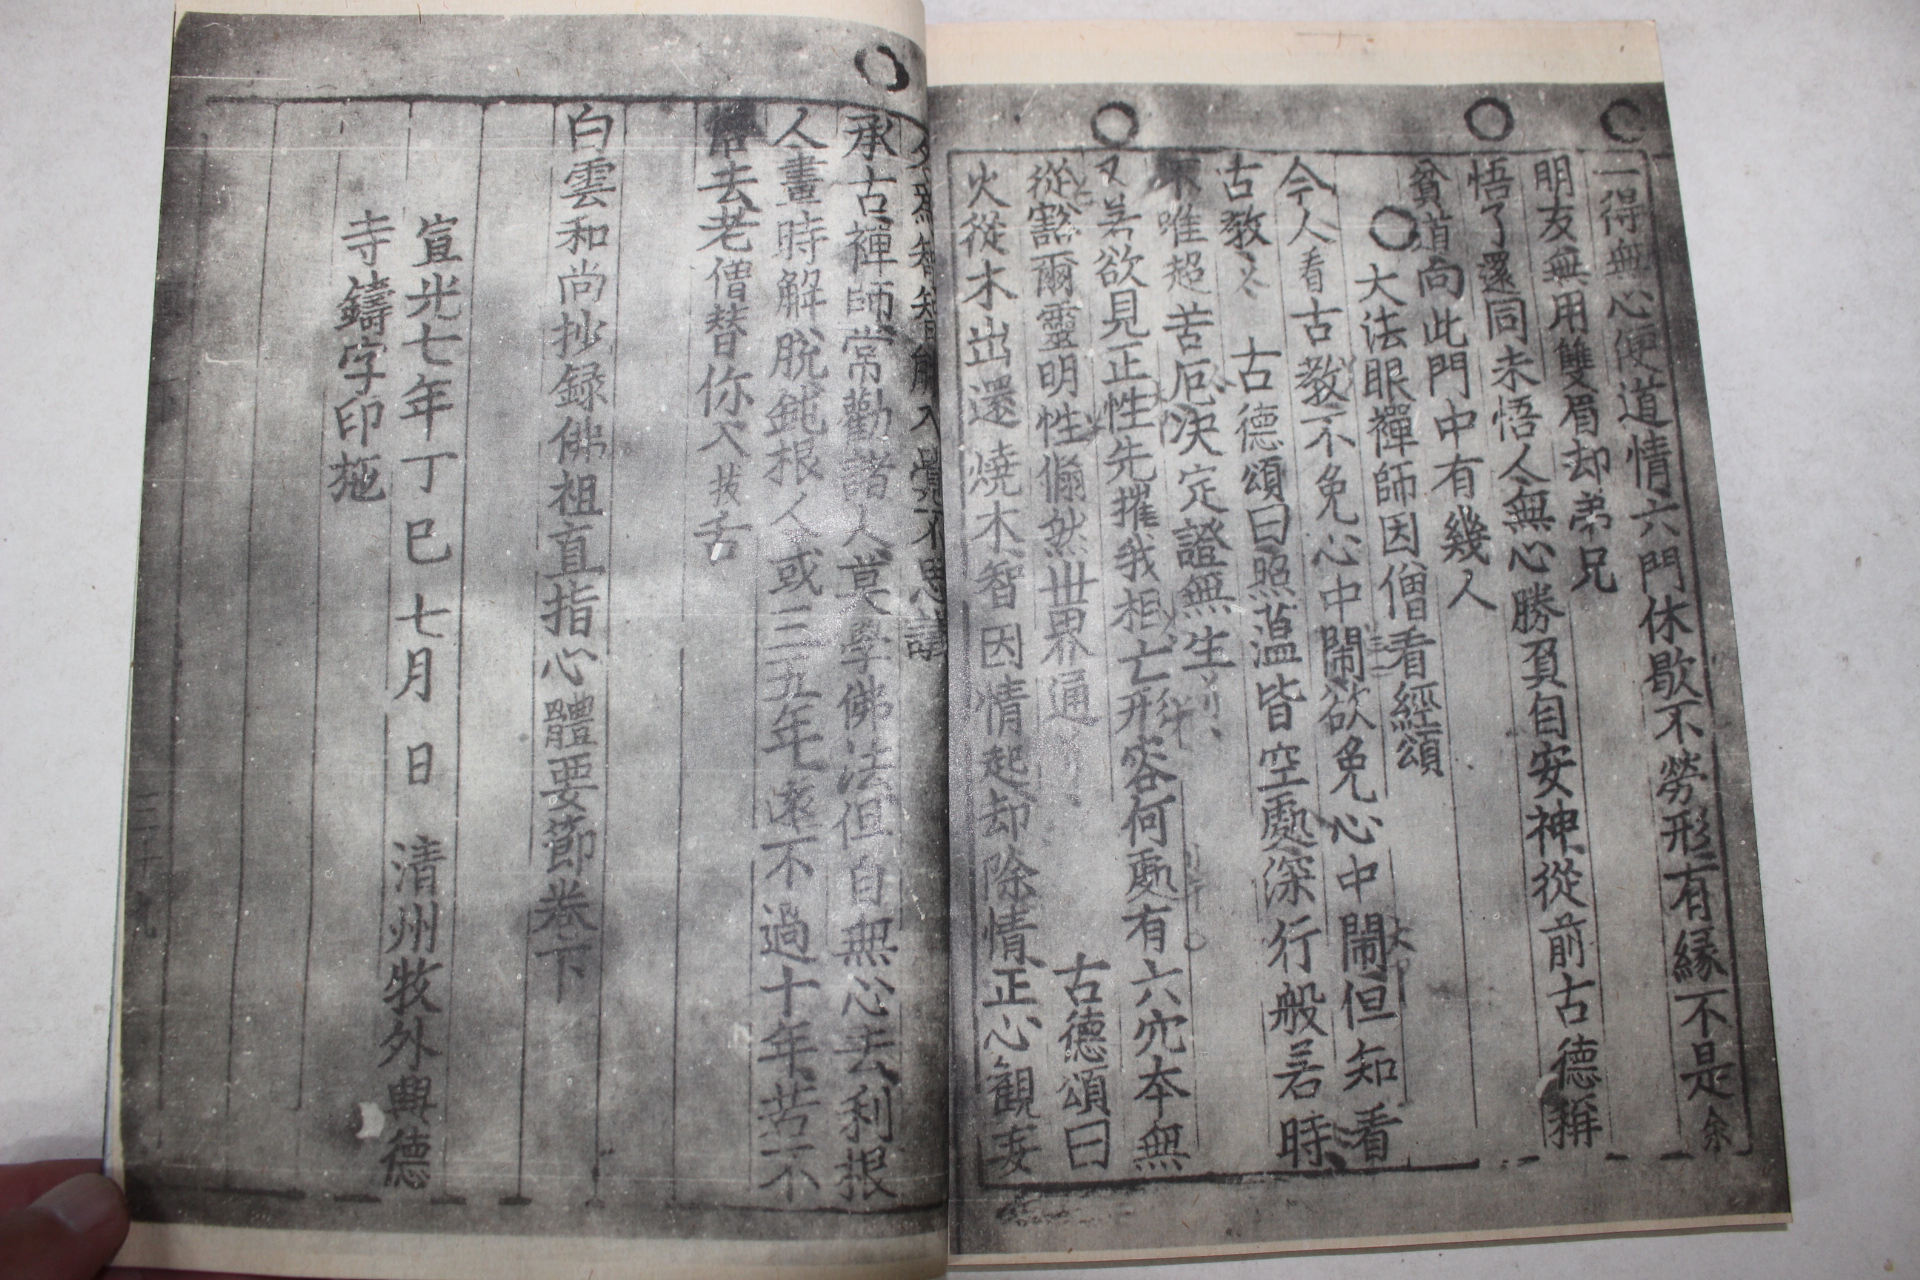 一得無心便道情六門休歇不勞形有緣不是余
明友無用雙眉却弟兄
悟了還同未悟人無心勝負自安神從前古德稱
貧道向此門中有幾人
大法眼禪師因僧看經頌
今人看古教不免心中鬧欲免心中鬧但知看
古教 古德頌曰照蘊皆空處深行般若時
不唯超苦厄决定證無生
又若欲見正性先摧我相亡形容何處有六穴本無
從豁爾靈明性翛然世界通 古德頌曰
火從木出還燒木智因情起却除情正心觀妄
智解入覺不思議
承古禪師常勸諸人莫學佛法但自無心去利根
人晝時解脫鈍根人或三五年遠不過十年若不
去老僧替你入拔舌
白雲和尚抄録佛祖直指心體要節卷下
宣光七年丁巳七月 日 清州牧外興德
寺鑄字印施
三十九